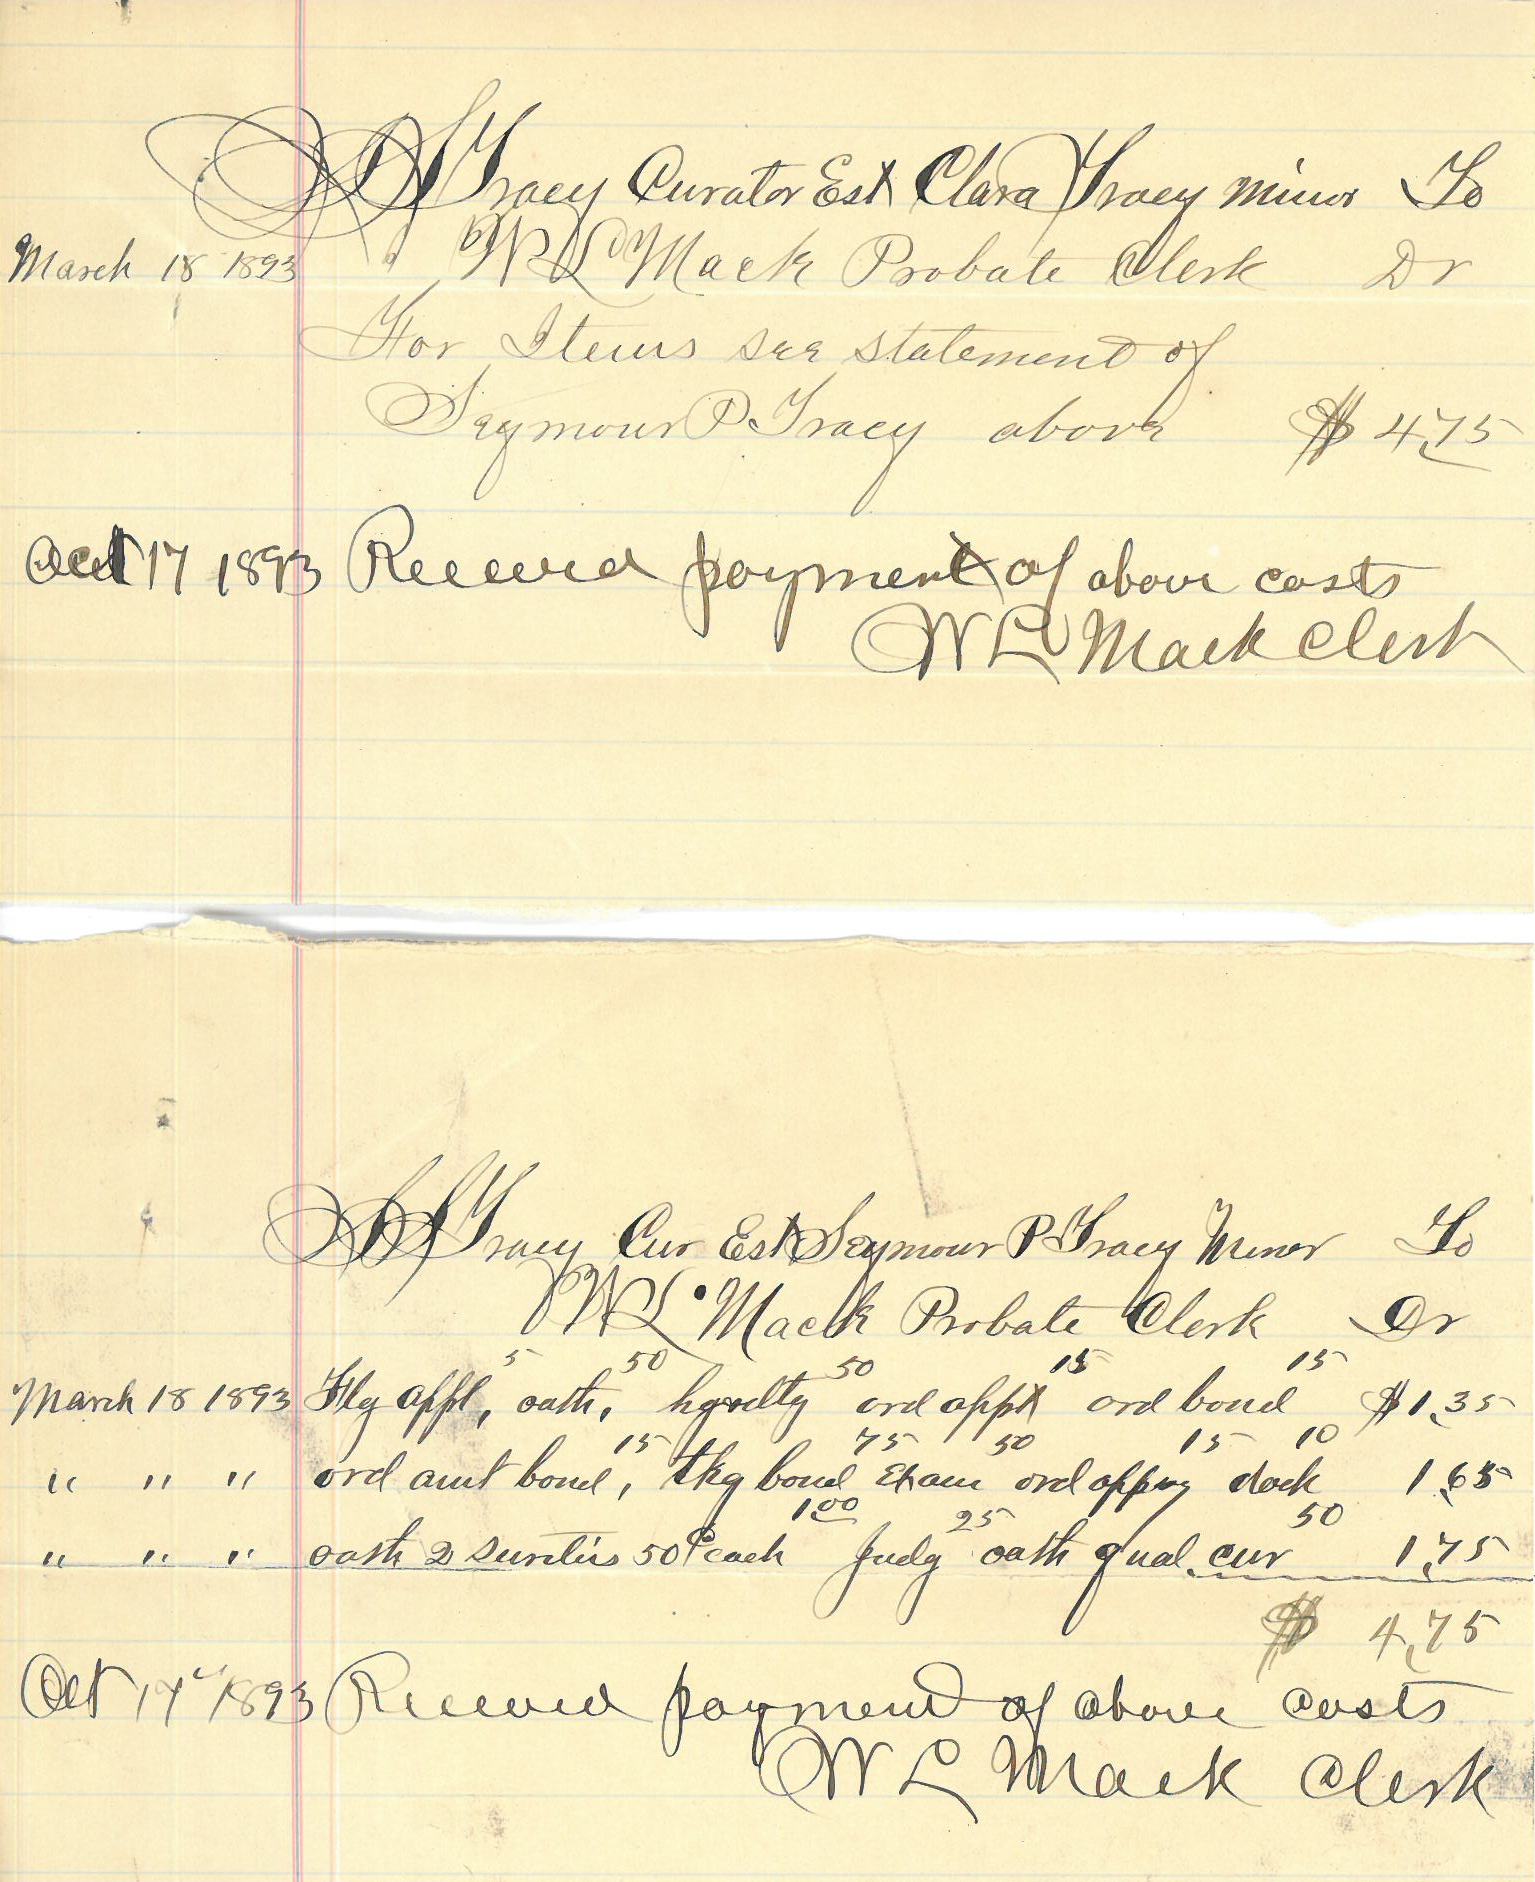 S S Tracy Curator Est Clara Tracy Minor To
March 18 1893 W L Mack Probate Clerk Dr
For Items see statement of
Seymour P. Tracy above $ 4.75
Oct 17 1893 Received payment of above costs
W L Mack Clerk
S S Tracy Cur Est Seymour P Tracy Minor To
W L Mack Probate Clerk Dr
5 50 50 15 15
March 18 1893 Flg appl, oath, ord appt ord bond $1.35
15 75 50 15 10
" " " ord amt bond, tkg bond Exam ord appvg dock 1.65
1 00 25 50
" " " oath 2 sureties 50¢ each Judg oath qual. cur 1.75
$ 4.75
Oct 17" 1893 Received payment of above costs
W L Mack Clerk